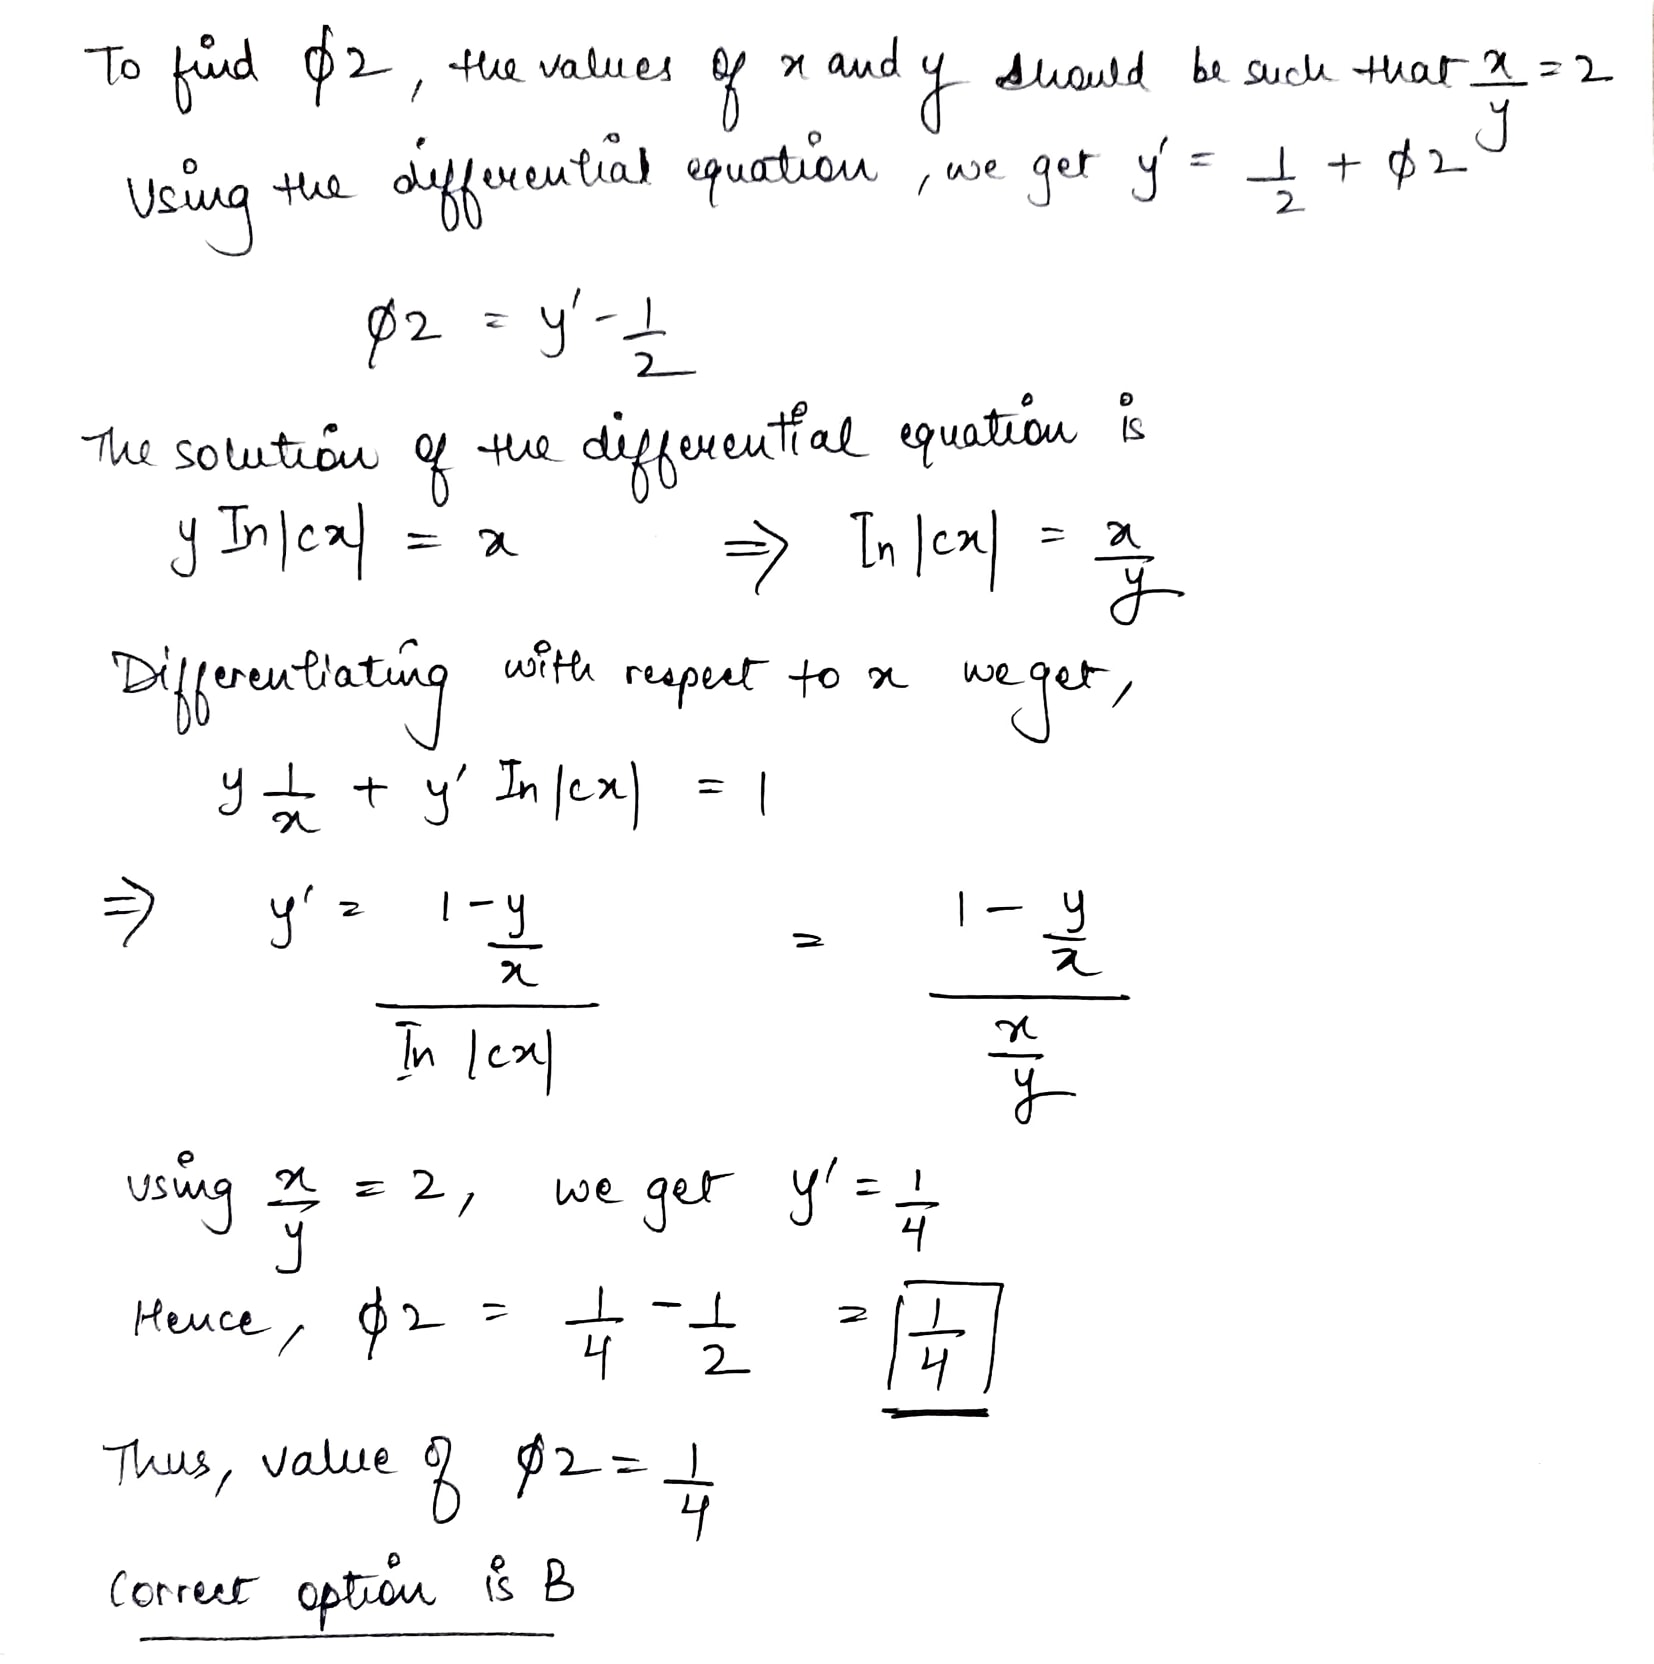 To find ϕ2, the values of x and y should be such that x/y = 2
Using the differential equation, we get y' = 1/2 + ϕ2
ϕ2 = y' - 1/2
The solution of the differential equation is
y In|cx| = x ⇒ In|cx| = x/y
Differentiating with respect to x we get,
y 1/x + y' In|cx| = 1
⇒ y' = (1 - y/x)/(In|cx|) = (1 - y/x)/(x/y)
Using x/y = 2, we get y' = 1/4
Hence, ϕ2 = 1/4 - 1/2 = 1/4
Thus, value of ϕ2 = 1/4
Correct option is B